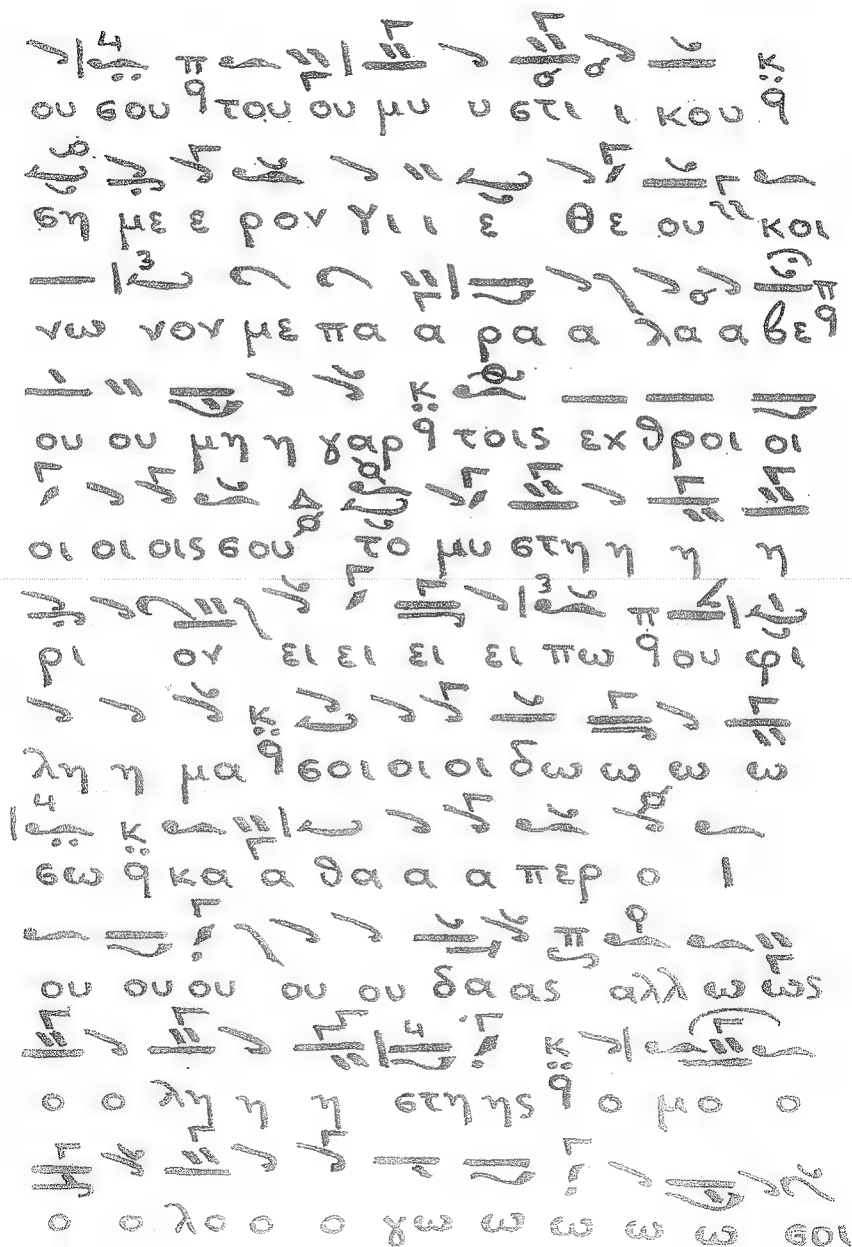 ου σου π̅ϥ του ου μυ υ στι ι κου κ̈ϥ
ση με ε ρον Υι ι ε Θε ου κοι
νω νον με πα α ρα α λα α βε πϥ
ου ου μη η γαρ κ̈ϥ τοις εχ θροι οι
οι οι οις σου Δ το μυ στη η η η
ρι ον ει ει ει ει πω πϥ ου φι
λη η μα κ̈ϥ σοι οι οι δω ω ω ω
σω κ̈ϥ κα α θα α α περ ο Ι
ου ου ου ου ου δα ας π αλλ ω ως
ο ο λη η η στη ης κ̈ϥ ο μο ο
ο ο λο ο ο γω ω ω ω ω σοι